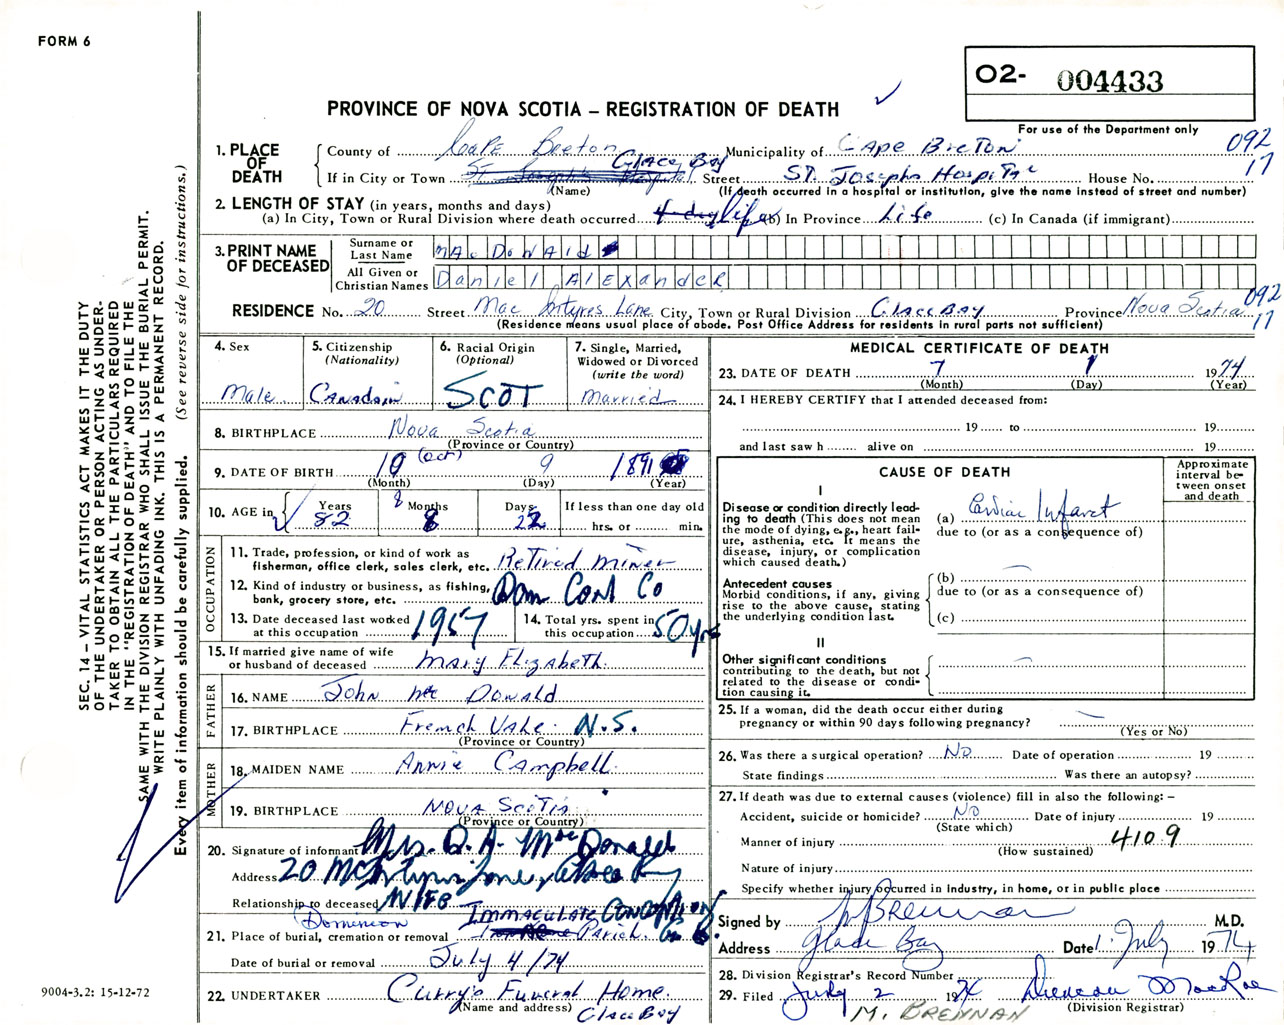 FORM 6
O2- 004433
PROVINCE OF NOVA SCOTIA – REGISTRATION OF DEATH
For use of the Department only
1. PLACE OF DEATH
County of Cape Breton Municipality of Cape Breton 092
If in City or Town St. Joseph's Hospital Glace Bay Street ST. Josephs Hospital House No. 17
(Name) (If death occurred in a hospital or institution, give the name instead of street and number)
2. LENGTH OF STAY (in years, months and days)
(a) In City, Town or Rural Division where death occurred life (b) In Province Life (c) In Canada (if immigrant)
3. PRINT NAME OF DECEASED
Surname or Last Name MAc DoNAld
All Given or Christian Names Daniel AlExandER
RESIDENCE No. 20 Street Mac Intyres Lane City, Town or Rural Division Glace Bay Province Nova Scotia 092 17
(Residence means usual place of abode. Post Office Address for residents in rural parts not sufficient)
4. Sex
Male
5. Citizenship
(Nationality)
Canadain
6. Racial Origin
(Optional)
SCOT
7. Single, Married,
Widowed or Divorced
(write the word)
Married
8. BIRTHPLACE Nova Scotia
(Province or Country)
9. DATE OF BIRTH 10 (Oct) 9 1891
(Month) (Day) (Year)
10. AGE in Years 82 Months 8 8 Days 22 If less than one day old
hrs. or min.
OCCUPATION
11. Trade, profession, or kind of work as
fisherman, office clerk, sales clerk, etc. Retired miner
12. Kind of industry or business, as fishing,
bank, grocery store, etc. Dom Coal Co
13. Date deceased last worked
at this occupation 1957
14. Total yrs. spent in
this occupation 50 yrs
15. If married give name of wife
or husband of deceased Mary Elizabeth
FATHER
16. NAME John Mc Donald
17. BIRTHPLACE French Vale N.S.
(Province or Country)
MOTHER
18. MAIDEN NAME Annie Campbell
19. BIRTHPLACE Nova Scotia
(Province or Country)
20. Signature of informant Mrs. D. A. MacDonald
Address 20 McIntyres Lane, Glace Bay
Relationship to deceased WIFE
Dominion IMMACULATE CONCEPTION
21. Place of burial, cremation or removal Parish G. B.
Date of burial or removal July 4/74
22. UNDERTAKER Curry's Funeral Home
(Name and address) Glace Bay
MEDICAL CERTIFICATE OF DEATH
23. DATE OF DEATH 7 1 1974
(Month) (Day) (Year)
24. I HEREBY CERTIFY that I attended deceased from:
19 to 19
and last saw h alive on 19
CAUSE OF DEATH
Approximate interval between onset and death
I
Disease or condition directly leading to death (This does not mean the mode of dying, e.g., heart failure, asthenia, etc. It means the disease, injury, or complication which caused death.)
(a) Cardiac Infarct
due to (or as a consequence of)
Antecedent causes
Morbid conditions, if any, giving rise to the above cause, stating the underlying condition last.
(b)
due to (or as a consequence of)
(c)
II
Other significant conditions
contributing to the death, but not related to the disease or condition causing it.
25. If a woman, did the death occur either during
pregnancy or within 90 days following pregnancy?
(Yes or No)
26. Was there a surgical operation? No Date of operation 19
State findings Was there an autopsy?
27. If death was due to external causes (violence) fill in also the following: –
Accident, suicide or homicide? No Date of injury 19
(State which)
Manner of injury 4109
(How sustained)
Nature of injury
Specify whether injury occurred in Industry, in home, or in public place
Signed by M Brennan M.D.
Address Glace Bay Date 1 July 1974
28. Division Registrar's Record Number
29. Filed July 2 1974 Duncan MacRae
(Division Registrar)
M. BRENNAN
SEC. 14 – VITAL STATISTICS ACT MAKES IT THE DUTY
OF THE UNDERTAKER OR PERSON ACTING AS UNDER-
TAKER TO OBTAIN ALL THE PARTICULARS REQUIRED
IN THE "REGISTRATION OF DEATH" AND TO FILE THE
SAME WITH THE DIVISION REGISTRAR WHO SHALL ISSUE THE BURIAL PERMIT.
WRITE PLAINLY WITH UNFADING INK. THIS IS A PERMANENT RECORD.
Every item of information should be carefully supplied. (See reverse side for instructions.)
9004-3.2: 15-12-72